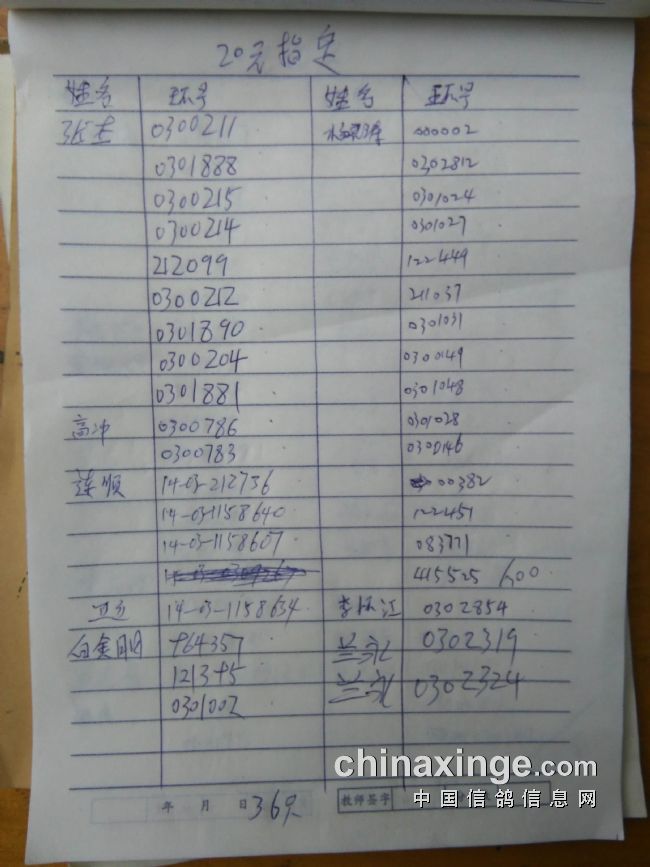 20元指定
姓名 环号 姓名 环号
张 0300211 000002
0301888 0302812
0300215 0301024
0300214 0301027
212099 122449
0300212 211037
0301890 0301031
0300204 0300149
0301881 0301048
高冲 0300786 0301028
0300783 0300146
连顺 14-03-212736 00382
14-03-1158640 122451
14-03-1158607 083771
415525 600
卫 14-03-1158634 李 江 0302854
白金明 964357 兰永 0302319
121395 兰永 0302324
0301002
chinaxinge.com
年 月 日 36 教师签字 中国信鸽信息网